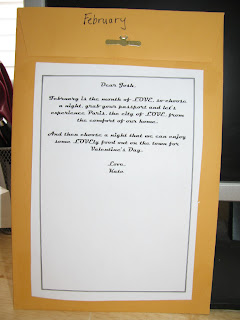 February
Dear Josh,
February is the month of LOVE, so choose
a night, grab your passport and let's
experience Paris, the city of LOVE, from
the comfort of our home.
And then choose a night that we can enjoy
some LOVEly food out on the town for
Valentine's Day.
Love,
Kate